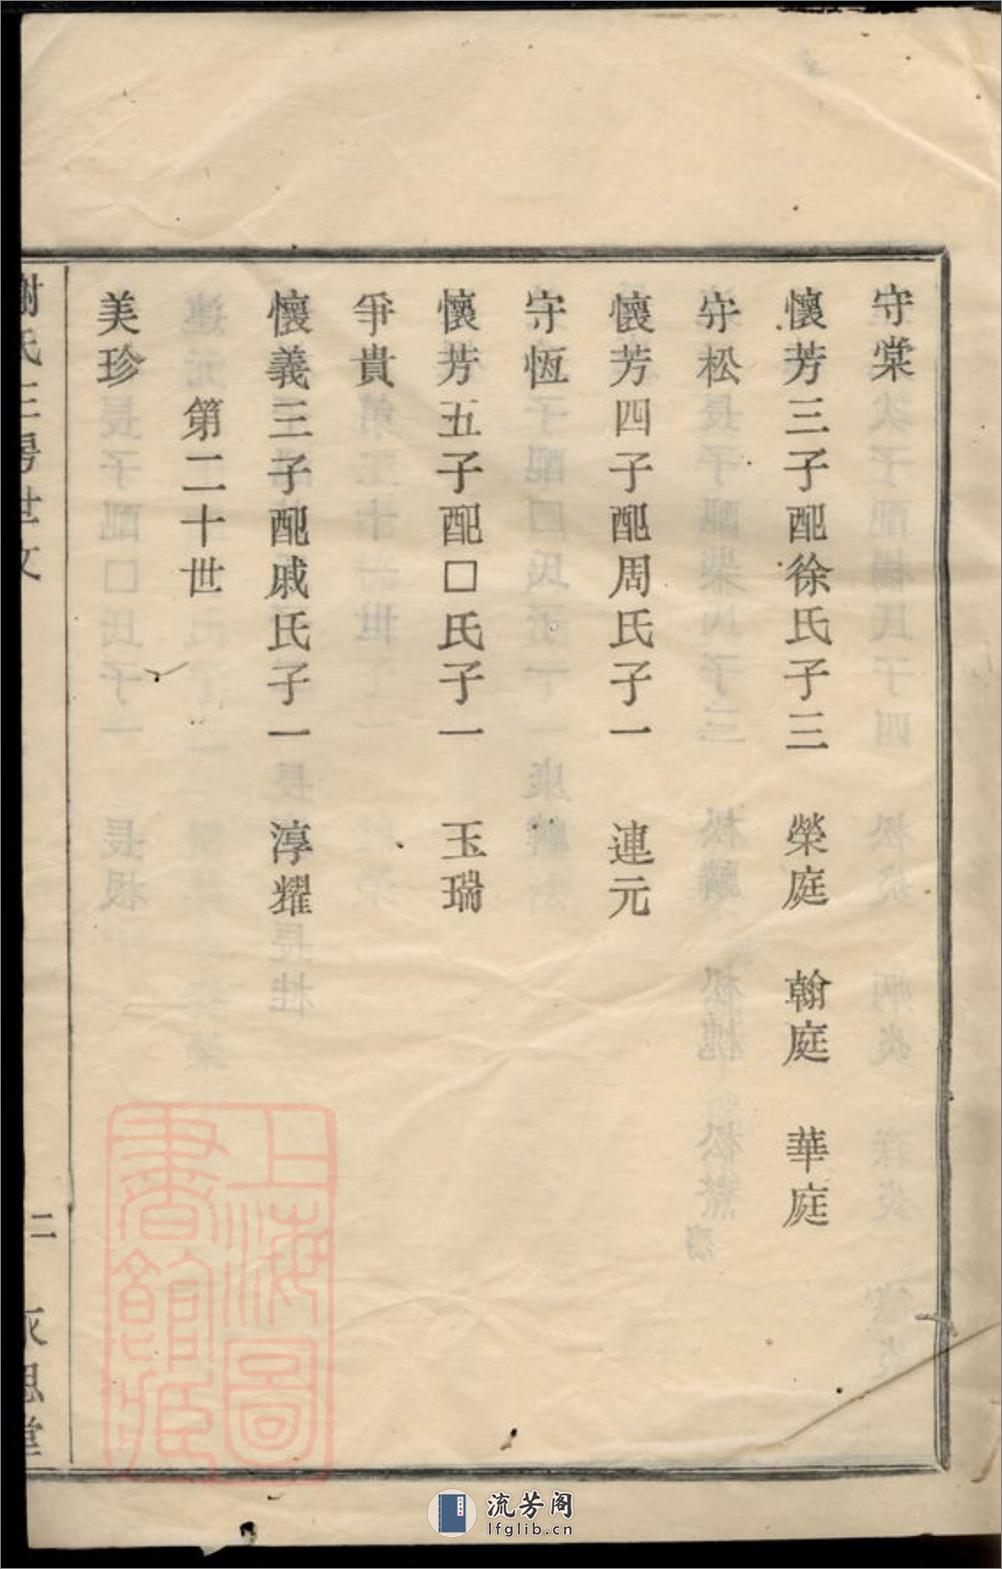 守棠
懷芳三子配徐氏子三　榮庭　翰庭　華庭
守松
懷芳四子配周氏子一　連元
守恆
懷芳五子配□氏子一　玉瑞
爭貴
懷義三子配戚氏子一　淳耀
第二十世
美珍
謝氏三房世文
二
永思堂
上海圖
書館藏
流芳阁
lfglib.cn